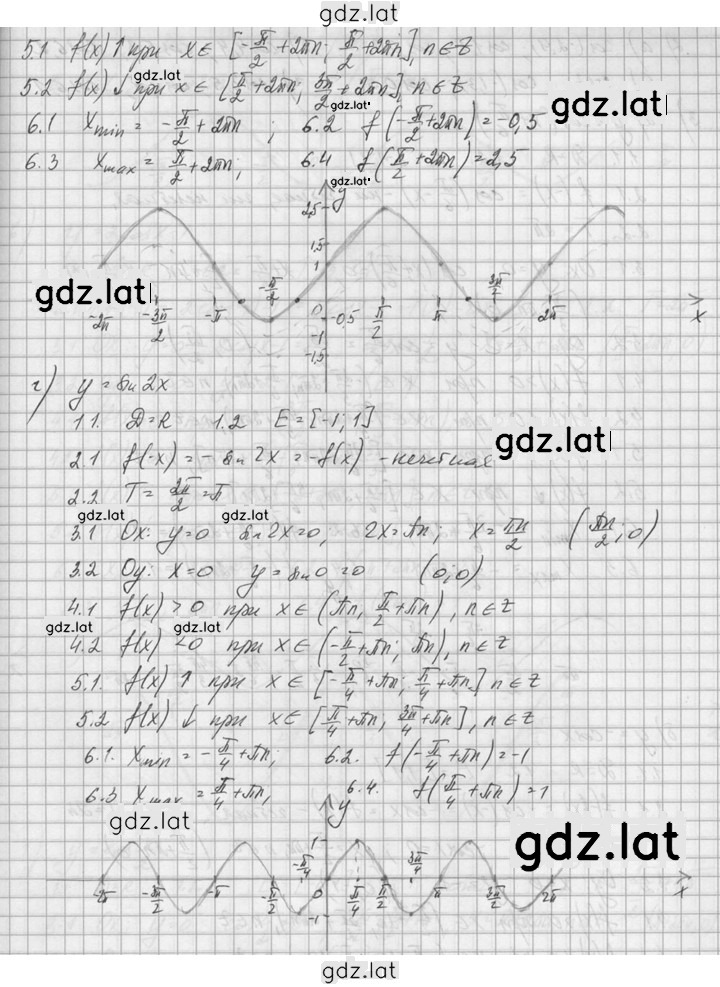 gdz.lat
5.1 f(x)↑ при x ∈ [-π/2+2πn; π/2+2πn], n∈Z
gdz.lat
5.2 f(x)↓ при x ∈ [π/2+2πn; 3π/2+2πn], n∈Z
gdz.lat gdz.lat
6.1 xmin = -π/2+2πn; 6.2 f(-π/2+2πn) = -0,5
gdz.lat
6.3 xmax = π/2+2πn; 6.4 f(π/2+2πn) = 2,5
gdz.lat
y
2,5
1,5
1
gdz.lat
-2π -3π/2 -π -π/2 0 -0,5 π/2 π 3π/2 2π x
-1
-1,5
г) y = sin 2x
1.1. D=R 1.2 E=[-1; 1]
gdz.lat
2.1 f(-x) = -sin 2x = -f(x) - нечетная
2.2 T = 2π/2 = π
gdz.lat gdz.lat
3.1 Ox: y=0 sin 2x=0, 2x=πn; x=πn/2 (πn/2; 0)
3.2 Oy: x=0 y=sin 0=0 (0; 0)
4.1 f(x) > 0 при x∈(πn, π/2+πn), n∈Z
gdz.lat gdz.lat
4.2 f(x) <0 при x∈(-π/2+πn; πn), n∈Z
5.1. f(x) ↑ при x∈[-π/4+πn; π/4+πn] n∈Z
5.2 f(x) ↓ при x∈[π/4+πn, 3π/4+πn], n∈Z
6.1. xmin = -π/4+πn; 6.2. f(-π/4+πn)=-1
6.3. xmax = π/4+πn, 6.4. f(π/4+πn)=1
gdz.lat
y
gdz.lat
1
-π/4 3π/4
-2π -3π/2 -π -π/2 0 π/4 π/2 π 3π/2 2π x
-1
gdz.lat